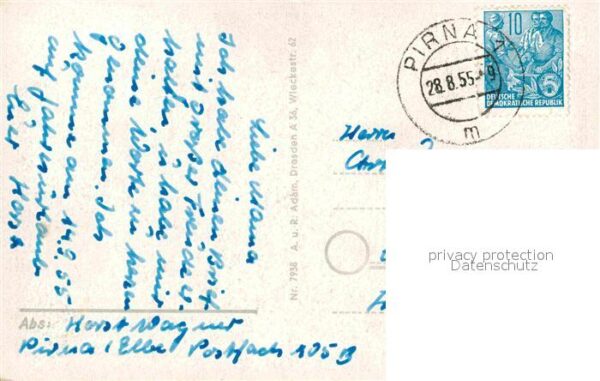 Liebe Mama
Ich habe deinen Brief
mit großer Freude er-
halten, u. habe mir
deine Worte zu herzen
genommen. Ich
komme am 14.9.55
auf Jahresurlaub
Euer Horst
Abs: Horst Wagner
Pirna / Elbe Postfach 105 B
Nr. 7938 A. u. R. Adam, Dresden A 36, Wieckestr. 62
PIRNA
28.8.55-9
m
10
DEUTSCHE
DEMOKRATISCHE REPUBLIK
Herrn
privacy protection
Datenschutz